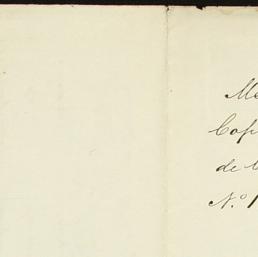 Me
Cop
de
N.º 1